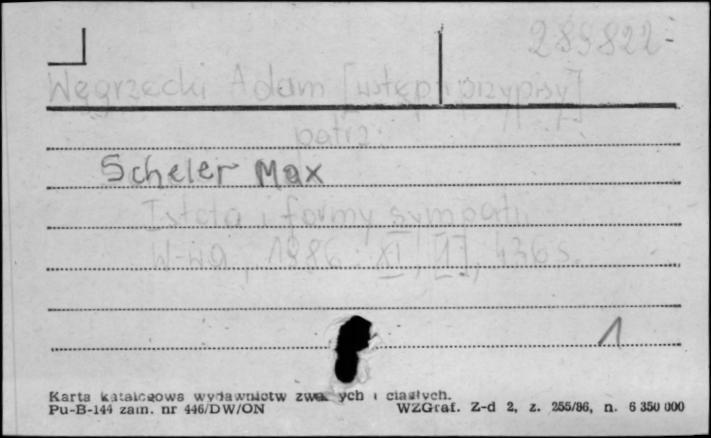 289822
Węgrzecki Adam [wstęp i przypisy]
patrz:
Scheler Max
Istota i formy sympatii
W-wa, 1986. XI, [1], 436 s.
1
Karta katalogowa wydawnictw zwa ych i ciągłych.
Pu-B-144 zam. nr 446/DW/ON WZGraf. Z-d 2, z. 255/86, n. 6 350 000